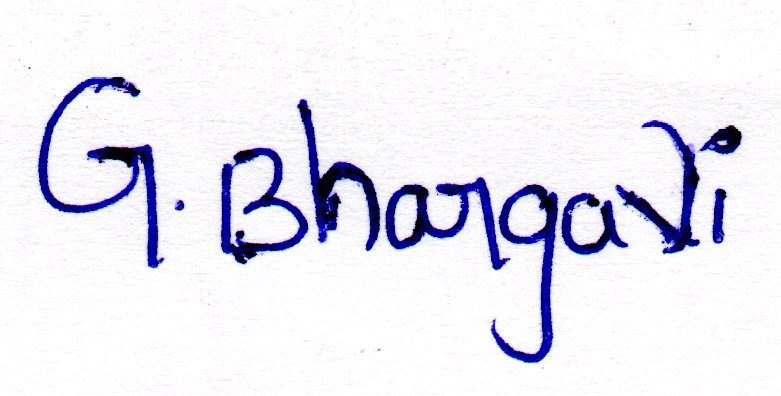 G. Bhargavi